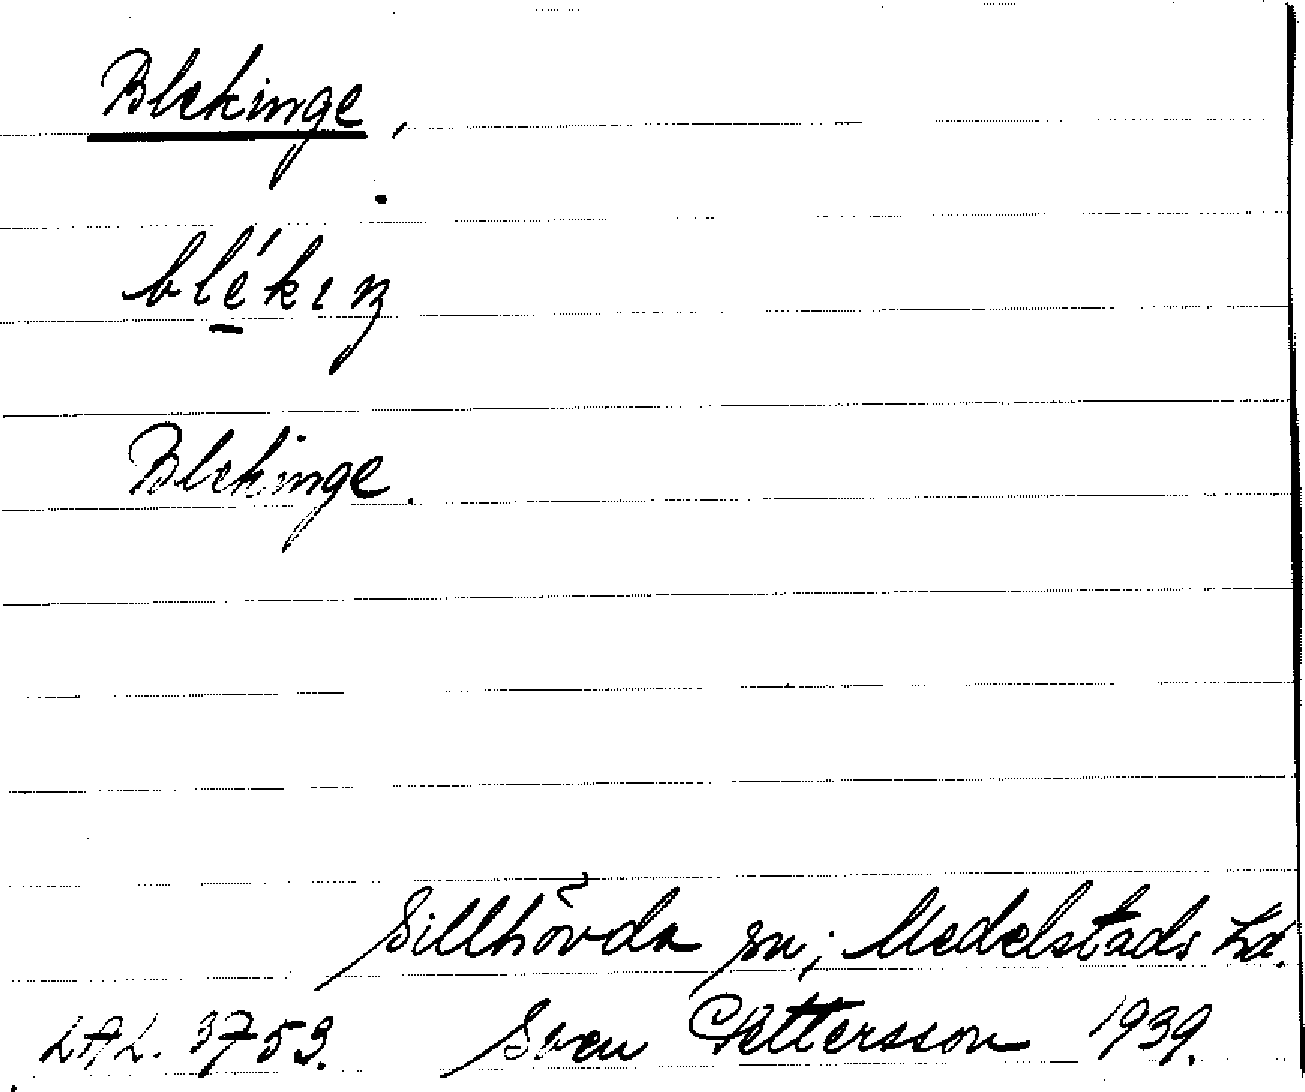 Blekinge,
blékıŋ
Blekinge.
Sillhövda sn; Medelstads hd.
LAL. 3753. Sven Pettersson 1939.